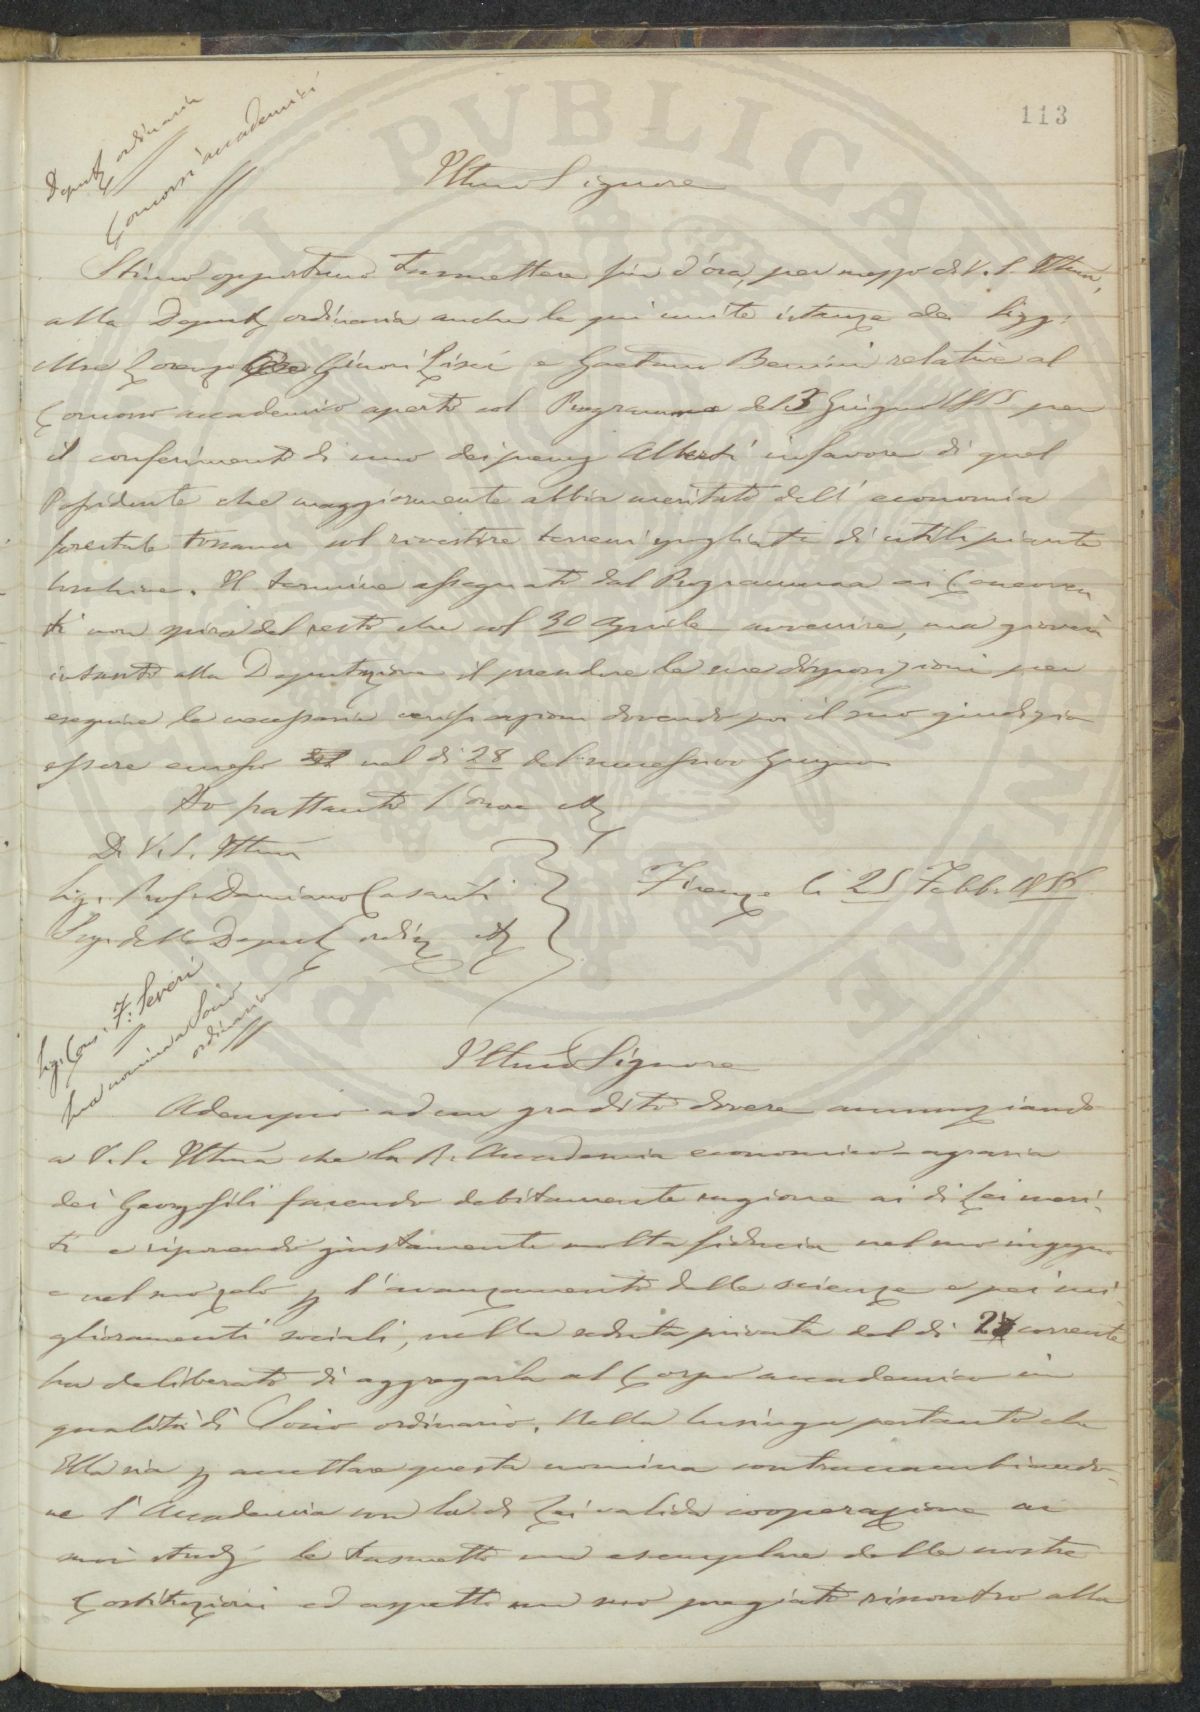 113
Deputaz ordinaria
Concorsi accademici
Illmo Signore
Stimo opportuno trasmettere fin d'ora, per mezzo di V. S. Illma,
alla Deputaz ordinaria anche le qui unite istanze dei Sigg:
Mse Lorenzo Ginori Lisci e Gaetano Bernini relative al
Concorso accademico aperto col Programma del 3 Giugno 1855 per
il conferimento di uno dei premj Alberti in favore di quel
Possidente che maggiormente abbia meritato dell' economia
forestale toscana col rivestire terreni spogliati di utili piante
boschive. Il termine assegnato dal Programma ai Concorren
ti non spira del resto che col 30 Aprile avvenire, ma gioverà
intanto alla Deputazione il prendere le sue disposizioni per
eseguire le necessarie verificazioni dovendo poi il suo giudizio
essere emesso nel di 28 del successivo Giugno
Ho frattanto l'onore
Di V. S. Illma
Sig. Prof. Damiano Casanti
Seg. della Deputaz ordin
Firenze li 25 Febb. 1856
Sig. Cons. F. Severi
sua nomina a Socio
ordinario
Illmo Signore
Adempio ad un gradito dovere annunziando
a V. S. Illma che la R. Accademia economico-agraria
dei Georgofili facendo debitamente ragione ai di Lei meri-
ti e riponendo giustamente molta fiducia nel suo ingegno
e nel suo zelo p l'avanzamento delle scienze e pei mi-
glioramenti sociali, nella seduta privata del di 24 corrente
ha deliberato di aggregarla al Corpo accademico in
qualità di Socio ordinario. Nella lusinga pertanto che
Ella sia p accettare questa nomina contraccambiando-
ne l'Accademia con la di Lei valida cooperazione ai
suoi studj le trasmetto un esemplare delle nostre
Costituzioni ed aspetto un suo pregiato riscontro alla